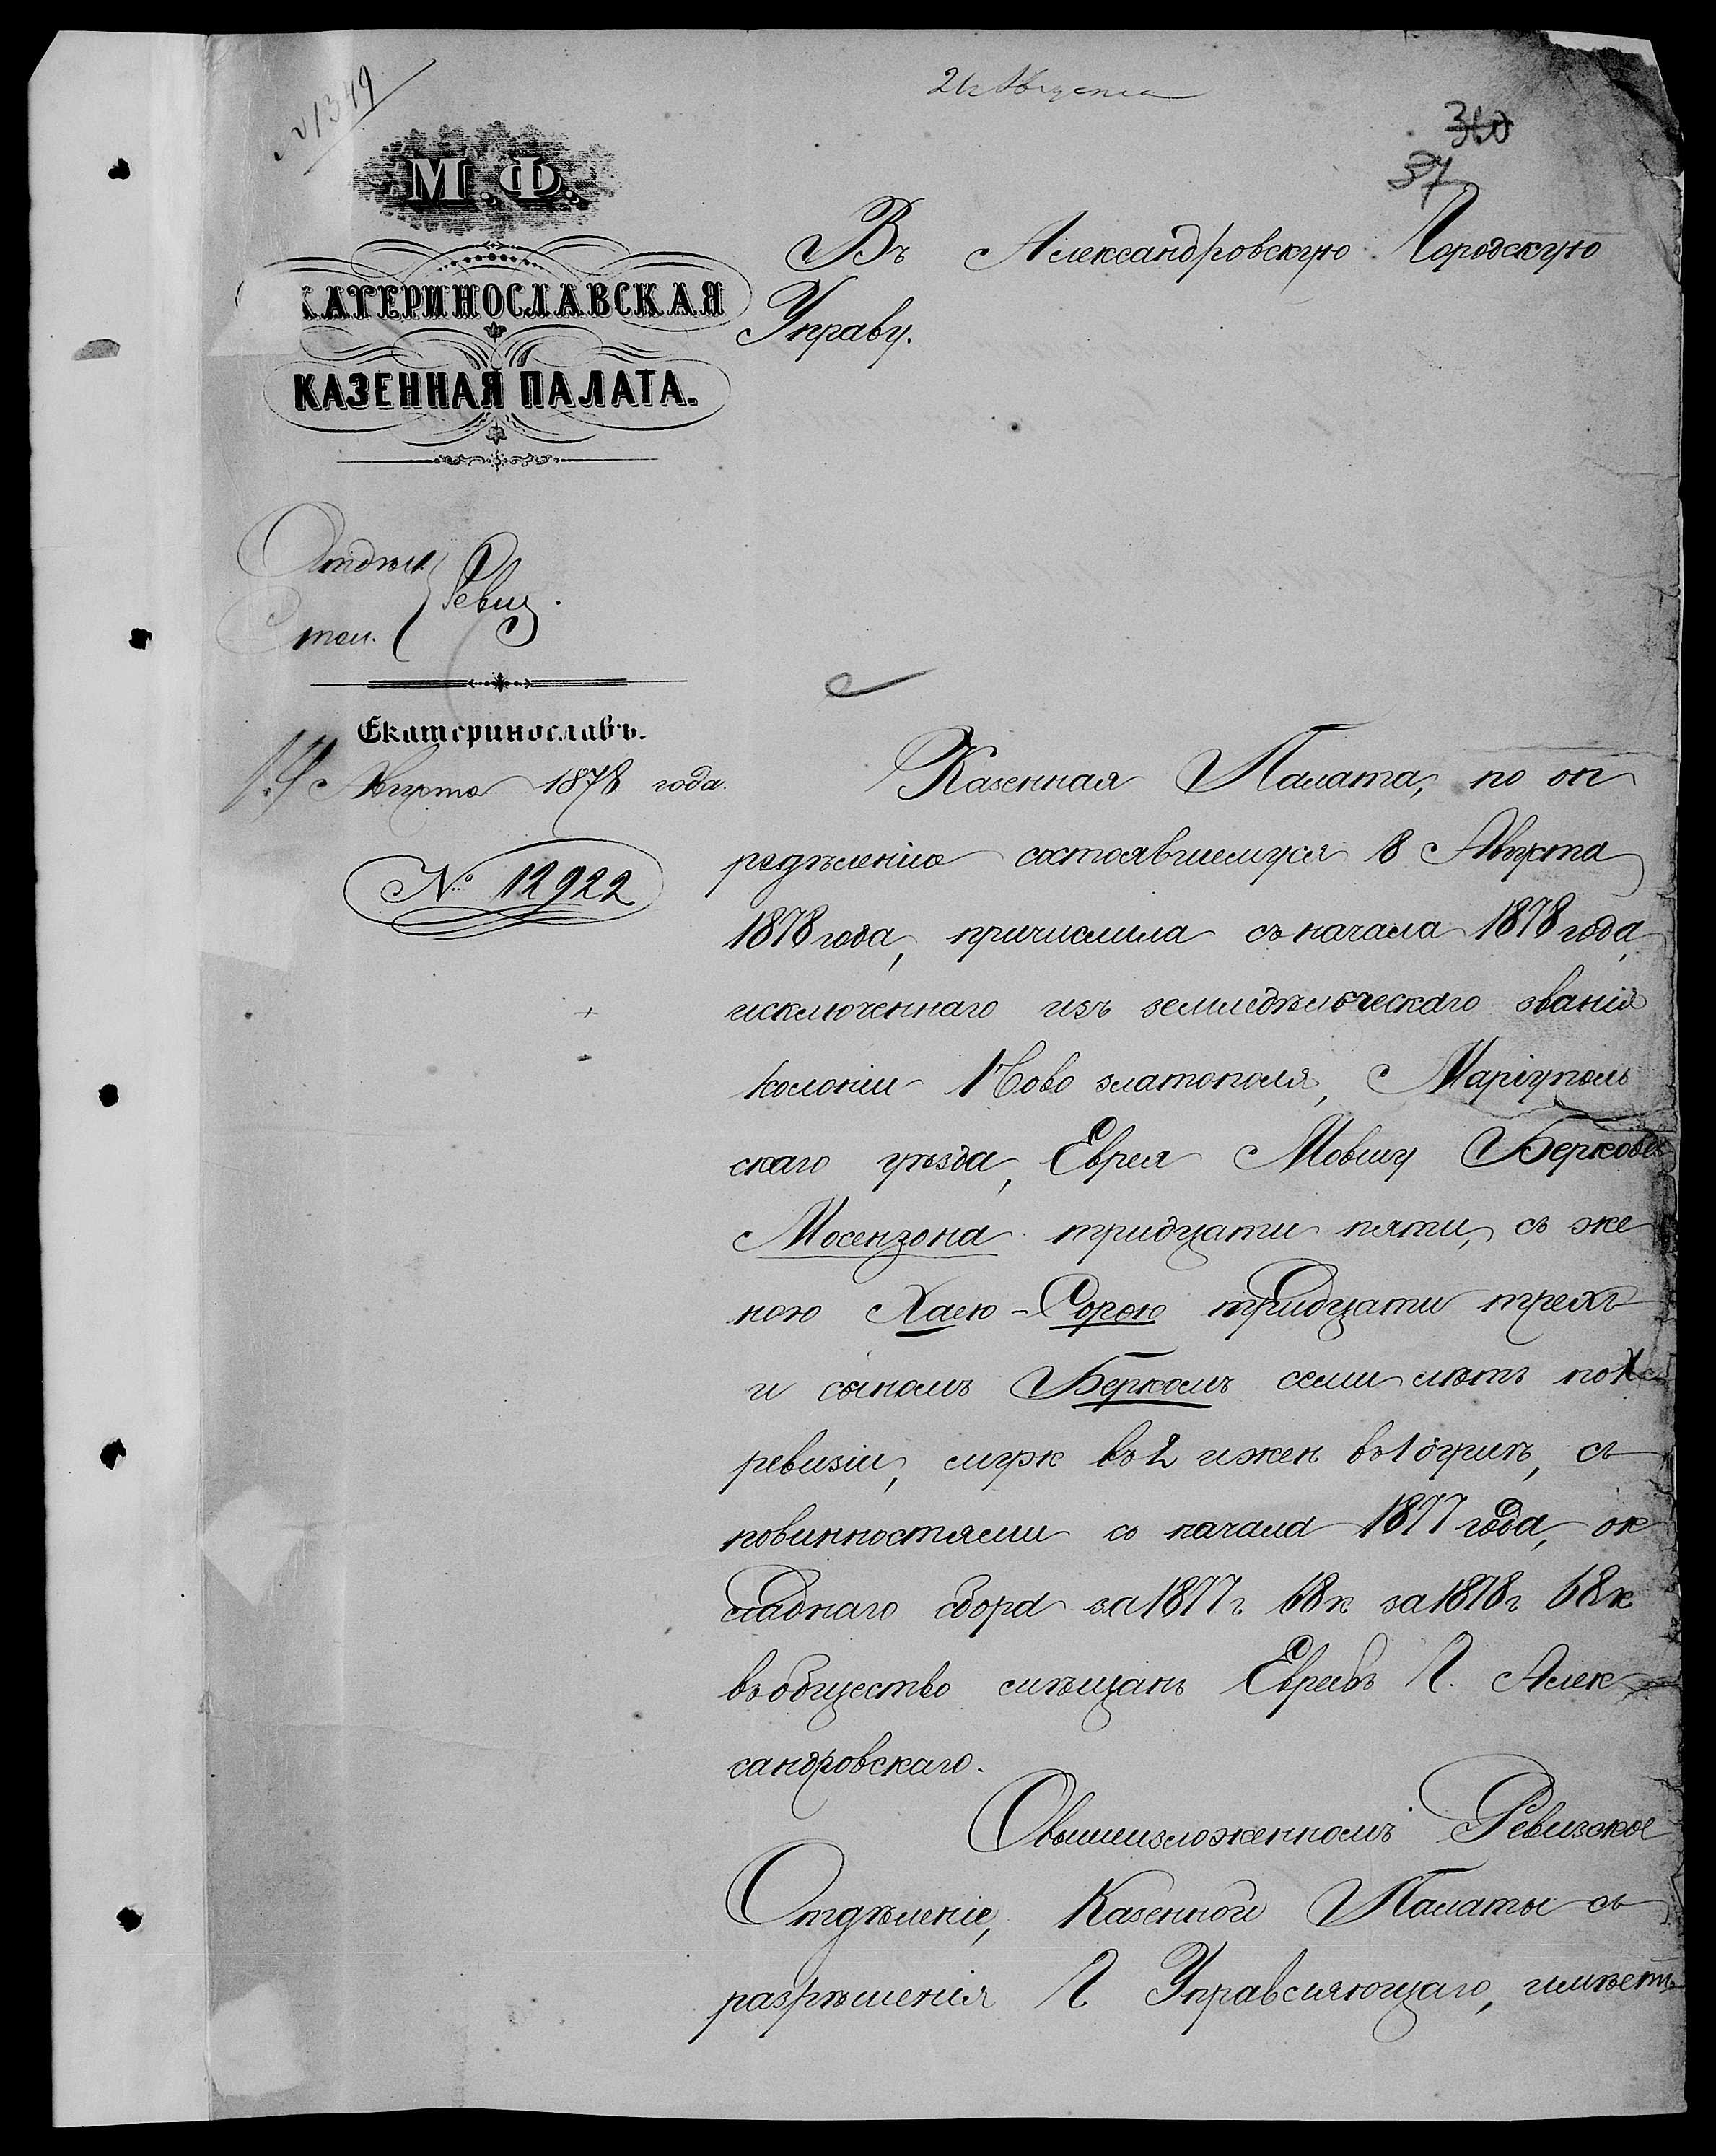 № 1349
21 Августа
360
37
М.Ф.
КАТЕРИНОСЛАВСКАЯ
КАЗЕННАЯ ПАЛАТА.
Отдѣл.
Стол.
Ревиз.
Екатеринославъ.
14 Августа 1878 года.
№ 12922
Въ Александровскую Городскую
Управу.
Казенная Палата, по оп
редѣленію состоявшемуся 8 Августа
1878 года, причислила съ начала 1878 года,
исключеннаго изъ земледѣльческаго званія
колоніи Ново златополя, Маріуполь
скаго уѣзда, Еврея Мовшу Берковa
Мосензона тридцати пяти, съ же
ною Хаею-Сорою тридцати трехъ
и сыномъ Беркомъ семи лѣтъ по X
ревизіи, муж въ 2 и жен въ 1 душѣ, съ
повинностями со начала 1877 года, ок
ладнаго сбора за 1877 г 68 к за 1878 г 68 к
въ общество мѣщанъ Евреевъ Г. Алек
сандровскаго.
О вышеизложенномъ Ревизское
Отдѣленіе, Казенной Палаты съ
разрѣшенія Г Управляющаго, имѣетъ